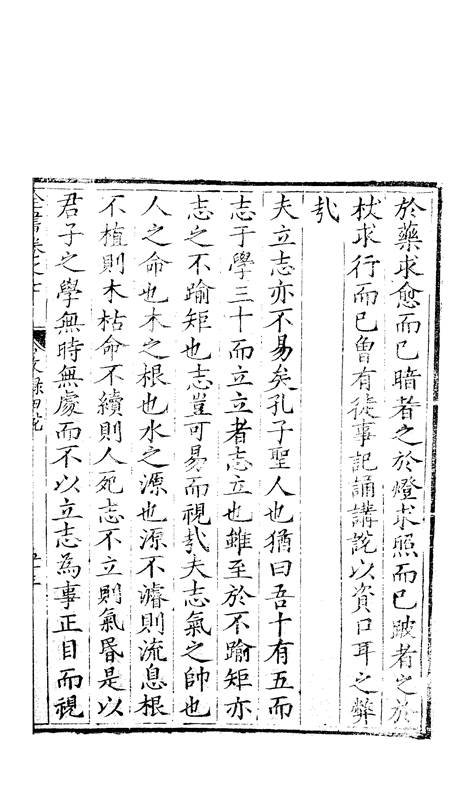 於藥求愈而已暗者之於燈求照而已跛者之於
杖求行而已曾有徒事記誦講說以資口耳之弊
哉
夫立志亦不易矣孔子聖人也猶曰吾十有五而
志于學三十而立立者志立也雖至於不踰矩亦
志之不踰矩也志豈可易而視哉夫志氣之帥也
人之命也木之根也水之源也源不濬則流息根
不植則木枯命不續則人死志不立則氣昏是以
君子之學無時無處而不以立志為事正目而視
全書卷之七